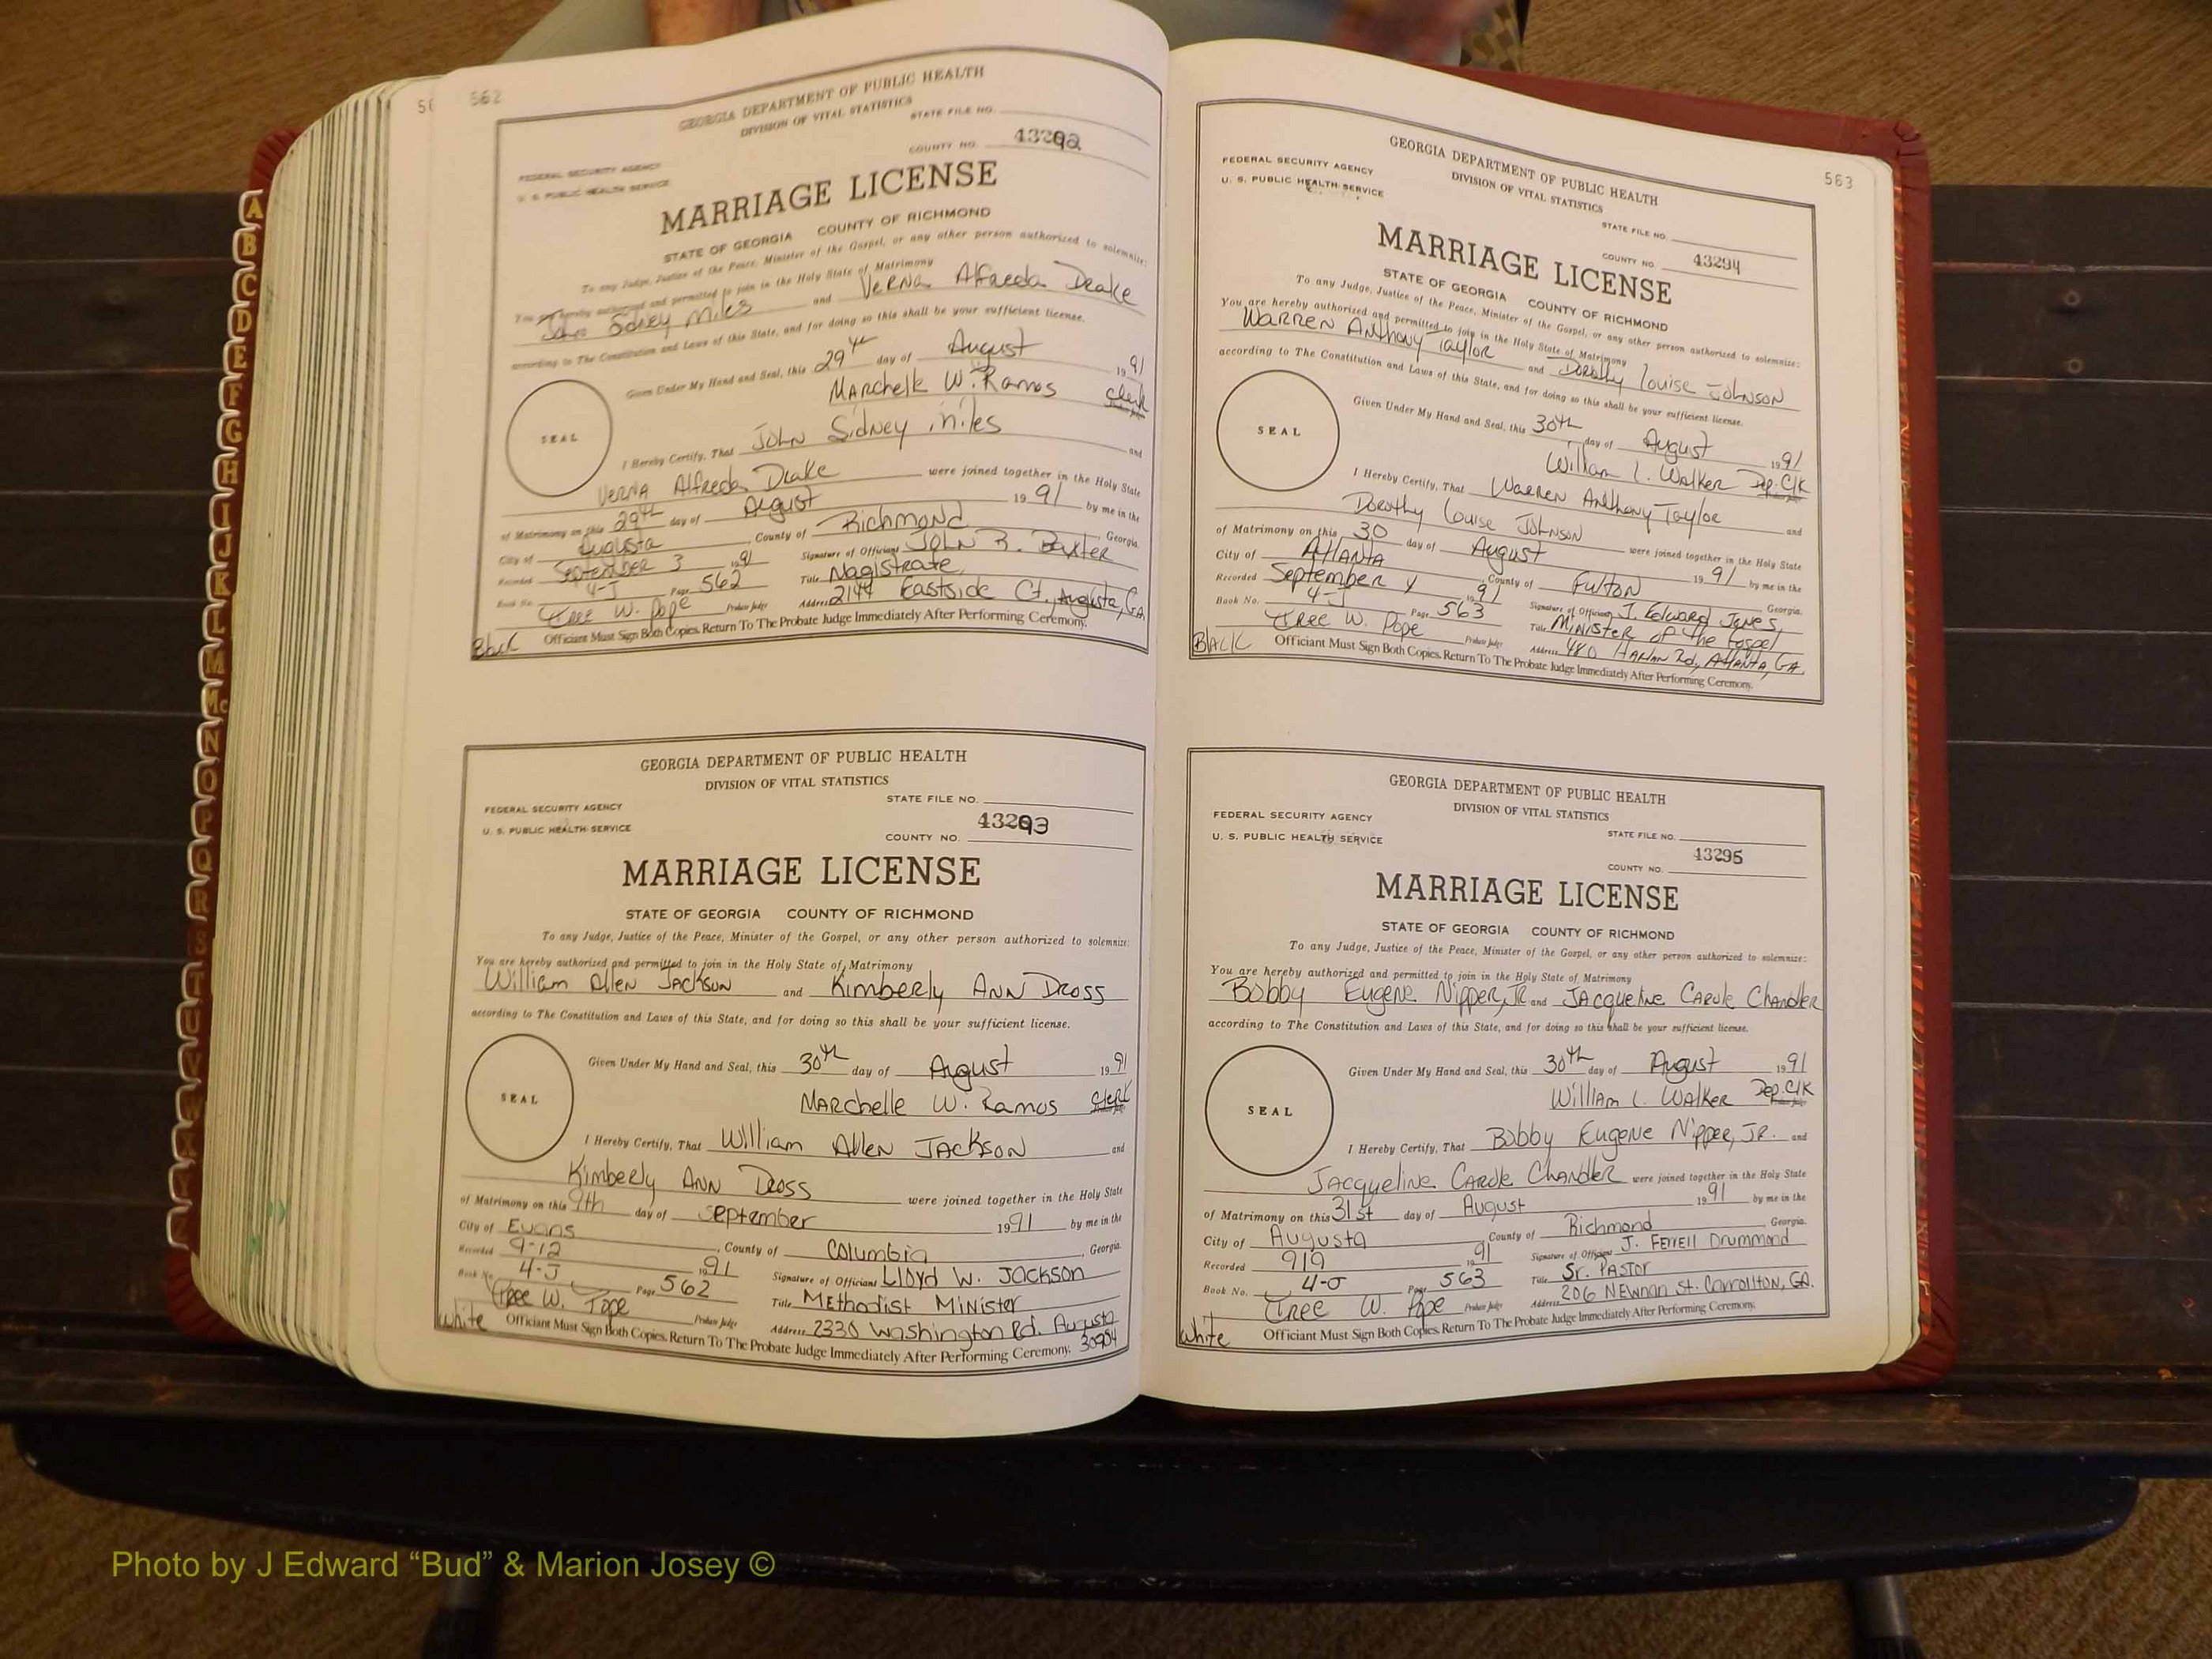 562
GEORGIA DEPARTMENT OF PUBLIC HEALTH
DIVISION OF VITAL STATISTICS
STATE FILE NO.
FEDERAL SECURITY AGENCY
U. S. PUBLIC HEALTH SERVICE
COUNTY NO. 43292
MARRIAGE LICENSE
STATE OF GEORGIA COUNTY OF RICHMOND
To any Judge, Justice of the Peace, Minister of the Gospel, or any other person authorized to solemnize:
You are hereby authorized and permitted to join in the Holy State of Matrimony
John Sidney Miles and Verna Alfreda Drake
according to The Constitution and Laws of this State, and for doing so this shall be your sufficient license.
Given Under My Hand and Seal, this 29th day of August 1991
Marchelle W. Ramos Clerk
SEAL
I Hereby Certify, That John Sidney Miles and
Verna Alfreda Drake were joined together in the Holy State
of Matrimony on this 29th day of August 1991 by me in the
City of Augusta, County of Richmond, Georgia.
Recorded September 3 1991 Signature of Officiant John R. Baxter
Book No. 4-J Page 562 Title Magistrate
Tree W. Pope Probate Judge Address 2144 Eastside Ct., Augusta, GA
Black Officiant Must Sign Both Copies. Return To The Probate Judge Immediately After Performing Ceremony.
GEORGIA DEPARTMENT OF PUBLIC HEALTH
DIVISION OF VITAL STATISTICS
FEDERAL SECURITY AGENCY STATE FILE NO.
U. S. PUBLIC HEALTH SERVICE COUNTY NO. 43293
MARRIAGE LICENSE
STATE OF GEORGIA COUNTY OF RICHMOND
To any Judge, Justice of the Peace, Minister of the Gospel, or any other person authorized to solemnize:
You are hereby authorized and permitted to join in the Holy State of Matrimony
William Allen Jackson and Kimberly Ann Dross
according to The Constitution and Laws of this State, and for doing so this shall be your sufficient license.
Given Under My Hand and Seal, this 30th day of August 1991
Marchelle W. Ramos Clerk
SEAL
I Hereby Certify, That William Allen Jackson and
Kimberly Ann Dross were joined together in the Holy State
of Matrimony on this 9th day of September 1991 by me in the
City of Evans, County of Columbia, Georgia.
Recorded 9-12 1991 Signature of Officiant Lloyd W. Jackson
Book No. 4-J Page 562 Title Methodist Minister
Tree W. Pope Probate Judge Address 2330 Washington Rd. Augusta
White Officiant Must Sign Both Copies. Return To The Probate Judge Immediately After Performing Ceremony. 30904
563
GEORGIA DEPARTMENT OF PUBLIC HEALTH
DIVISION OF VITAL STATISTICS
FEDERAL SECURITY AGENCY
U. S. PUBLIC HEALTH SERVICE
STATE FILE NO.
COUNTY NO. 43294
MARRIAGE LICENSE
STATE OF GEORGIA COUNTY OF RICHMOND
To any Judge, Justice of the Peace, Minister of the Gospel, or any other person authorized to solemnize:
You are hereby authorized and permitted to join in the Holy State of Matrimony
Warren Anthony Taylor and Dorothy Louise Johnson
according to The Constitution and Laws of this State, and for doing so this shall be your sufficient license.
Given Under My Hand and Seal, this 30th day of August 1991
William L. Walker Dep. Clk
SEAL
I Hereby Certify, That Warren Anthony Taylor and
Dorothy Louise Johnson were joined together in the Holy State
of Matrimony on this 30 day of August 1991 by me in the
City of Atlanta, County of Fulton, Georgia.
Recorded September 4 1991 Signature of Officiant J. Edward Jones,
Book No. 4-J Page 563 Title Minister of the Gospel
Tree W. Pope Probate Judge Address 480 Harlan Rd, Atlanta, GA.
Black Officiant Must Sign Both Copies. Return To The Probate Judge Immediately After Performing Ceremony.
GEORGIA DEPARTMENT OF PUBLIC HEALTH
DIVISION OF VITAL STATISTICS
FEDERAL SECURITY AGENCY
U. S. PUBLIC HEALTH SERVICE
STATE FILE NO.
COUNTY NO. 43295
MARRIAGE LICENSE
STATE OF GEORGIA COUNTY OF RICHMOND
To any Judge, Justice of the Peace, Minister of the Gospel, or any other person authorized to solemnize:
You are hereby authorized and permitted to join in the Holy State of Matrimony
Bobby Eugene Nipper, Jr and Jacqueline Carole Chandler
according to The Constitution and Laws of this State, and for doing so this shall be your sufficient license.
Given Under My Hand and Seal, this 30th day of August 1991
William L. Walker Dep. Clk
SEAL
I Hereby Certify, That Bobby Eugene Nipper, Jr. and
Jacqueline Carole Chandler were joined together in the Holy State
of Matrimony on this 31st day of August 1991 by me in the
City of Augusta County of Richmond, Georgia.
Recorded 9/9 1991 Signature of Officiant J. Ferrell Drummond
Book No. 4-J Page 563 Title Sr. Pastor
Tree W. Pope Probate Judge Address 206 Newnan St. Carrollton, GA.
White Officiant Must Sign Both Copies. Return To The Probate Judge Immediately After Performing Ceremony.
A
B
C
D
E
F
G
H
I
J
K
L
M
Mc
N
O
P
Q
R
S
T
U
V
W
Photo by J Edward “Bud” & Marion Josey ©